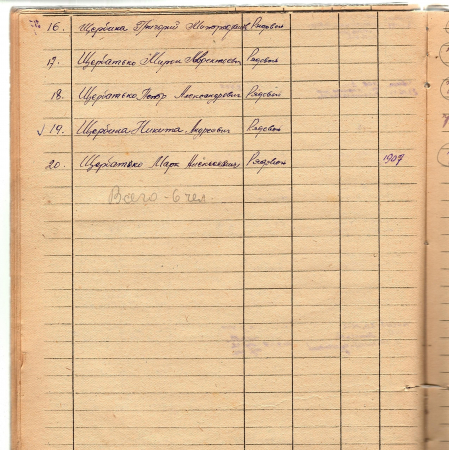 16. Щербина Григорий Рядовой
17. Щербатько Мирон Рядовой
18. Щербатько Петр Александрович Рядовой
√ 19. Щербина Никита Андреевич Рядовой
20. Щербатько Марк Рядовой 1907
Всего - 6 чел.